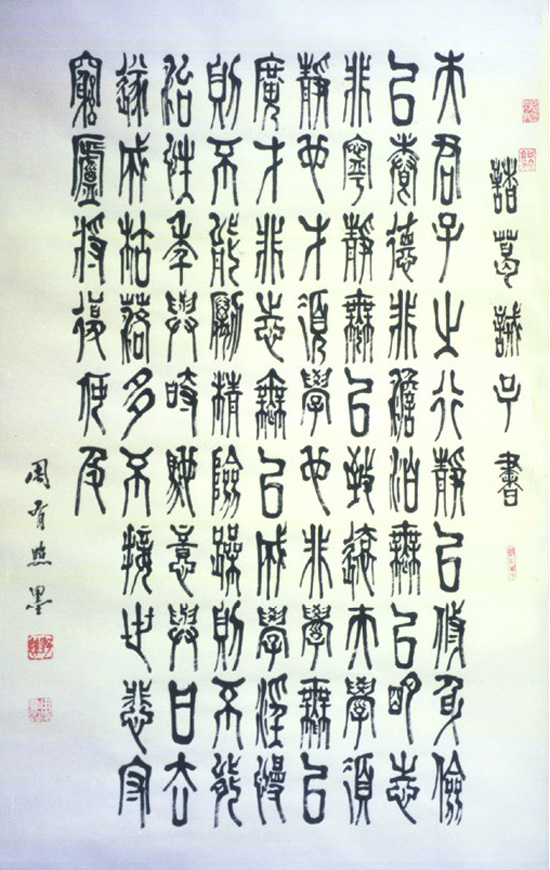 諸葛誡子書
夫君子之行靜以修身儉
以養德非澹泊無以明志
非寧靜無以致遠夫學須
靜也才須學也非學無以
廣才非志無以成學淫慢
則不能勵精險躁則不能
治性年與時馳意與日去
遂成枯落多不接世悲守
窮廬將復何及
周有墨